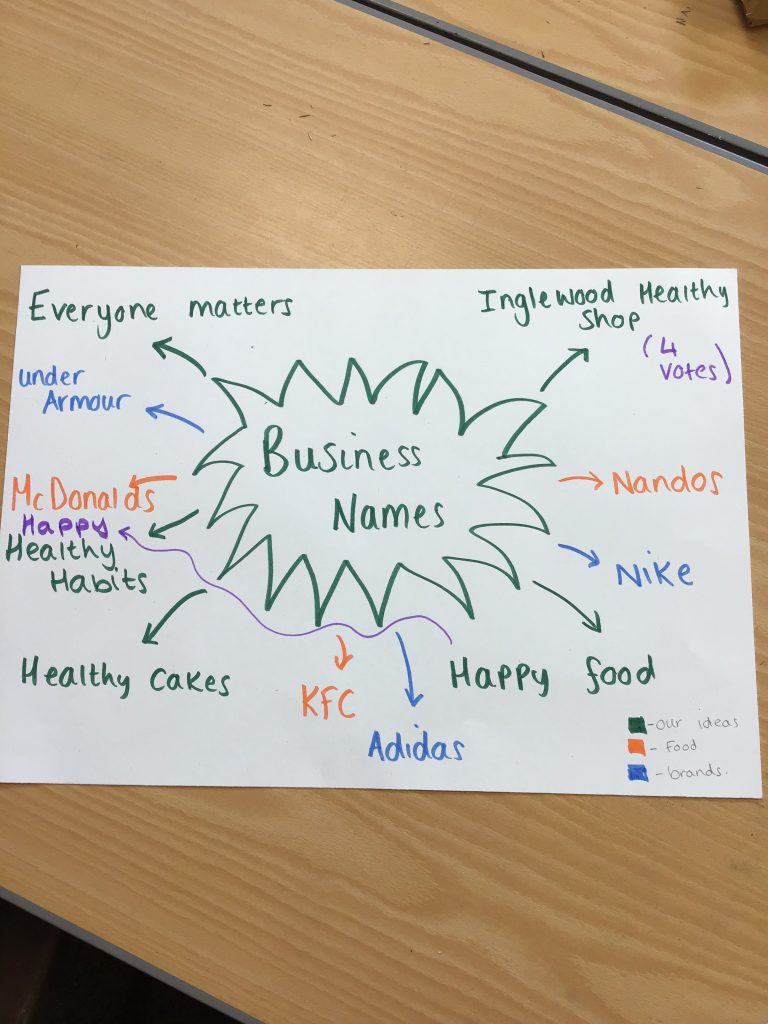 Everyone matters
Inglewood Healthy
Shop
(4
votes)
under
Armour
Business
Names
McDonalds
Nandos
Happy
Healthy
Habits
Nike
Healthy cakes
KFC
Adidas
Happy food
-our ideas
- Food
- brands.